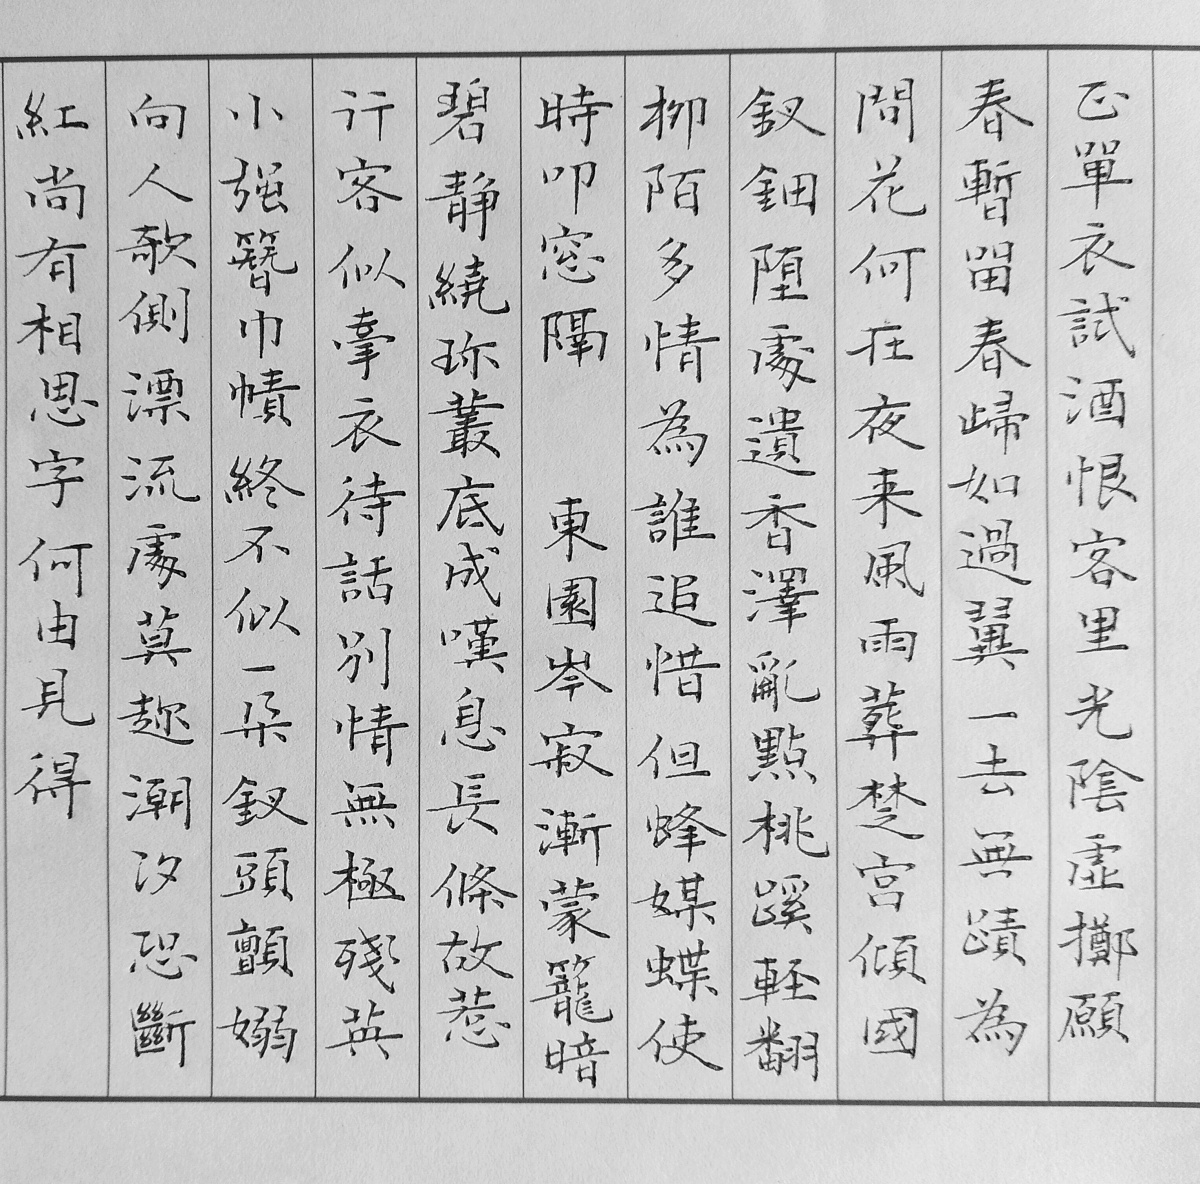 正單衣試酒恨客里光陰虛擲願
春暫留春歸如過翼一去無蹟為
問花何在夜来風雨葬楚宮傾國
釵鈿墮處遺香澤亂點桃蹊輕翻
柳陌多情為誰追惜但蜂媒蝶使
時叩窓隔　東園岑寂漸蒙籠暗
碧靜繞珎叢底成嘆息長條故惹
行客似牽衣待話別情無極殘英
小强簪巾幘終不似一朵釵頭顫嫋
向人欹側漂流處莫趂潮汐恐斷
紅尚有相思字何由見得